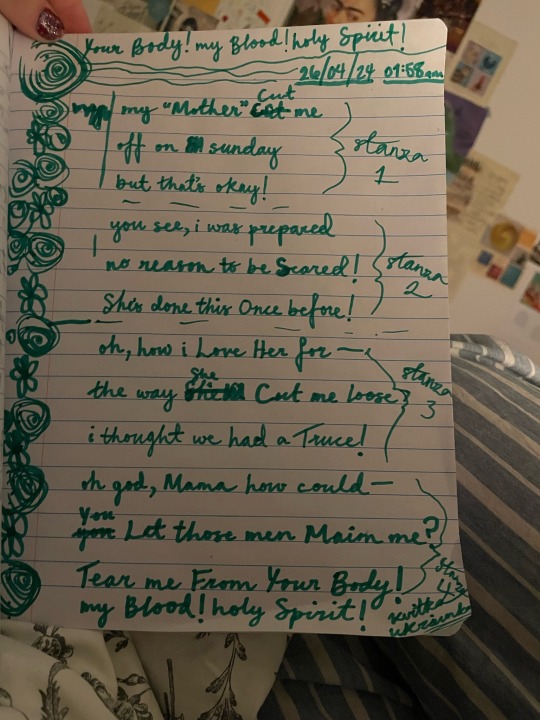 Your Body! my Blood! holy Spirit!
26/04/24 01:58am
my "Mother" Cut me
off on sunday
but that's okay!
stanza
1
you see, i was prepared
no reason to be Scared!
She's done this Once before!
stanza
2
oh, how i Love Her for —
the way She Cut me loose
i thought we had a Truce!
stanza
3
oh god, Mama how could —
You Let those men Maim me?
Tear me From Your Body!
my Blood! holy Spirit!
4